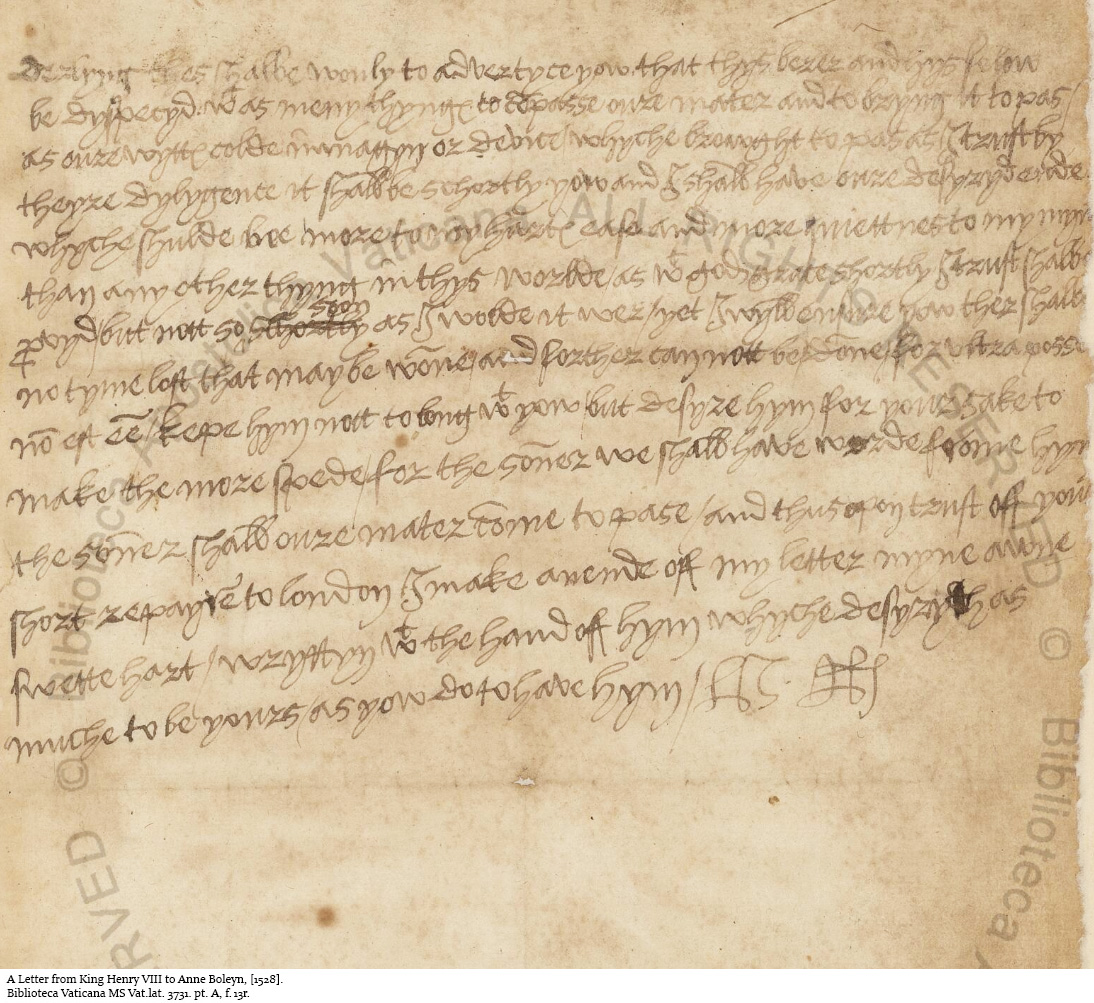 derlyng thes shalbe wonly to advertyce yow that thys berer and hys felow
be dyspecyd wt as meny thyngs to cōpasse oure mater and to bryng it to pas /
as oure wytts colde immagyn or device / whyche browght to pas as I trust by
theyre dylygence it shall be schortly yow and I shall have oure desyryd ende
whyche shulde bee more to my harts ease and more quiettnes to my myn
than any other thyng in thys worlde / as wt gods grace shortly I trust shalbe
provyd / but nott so schortly soon as I wolde it wer / yet I wyll ensure yow ther shalbe
no tyme lost that may be wōne and forther can nott be dōne / for ultra posse
nō est eē / kepe hym nott to long wt yow but desyre hym for your sake to
make the more spede / for the sōner we shall have worde frome hym
the sōner shall oure mater cōme to pase / and thus opon trust off your
short repayre to london I make an ende off my letter myne awne
swette hart / wryttyn wt the hand off hym whyche desyryth as
muche to be yours as yow do to have hym /
Vaticana ALL RIGHTS RESERVED © Biblioteca
RVED © Biblioteca Apostolica
A Letter from King Henry VIII to Anne Boleyn, [1528].
Biblioteca Vaticana MS Vat.lat. 3731. pt. A, f. 13r.